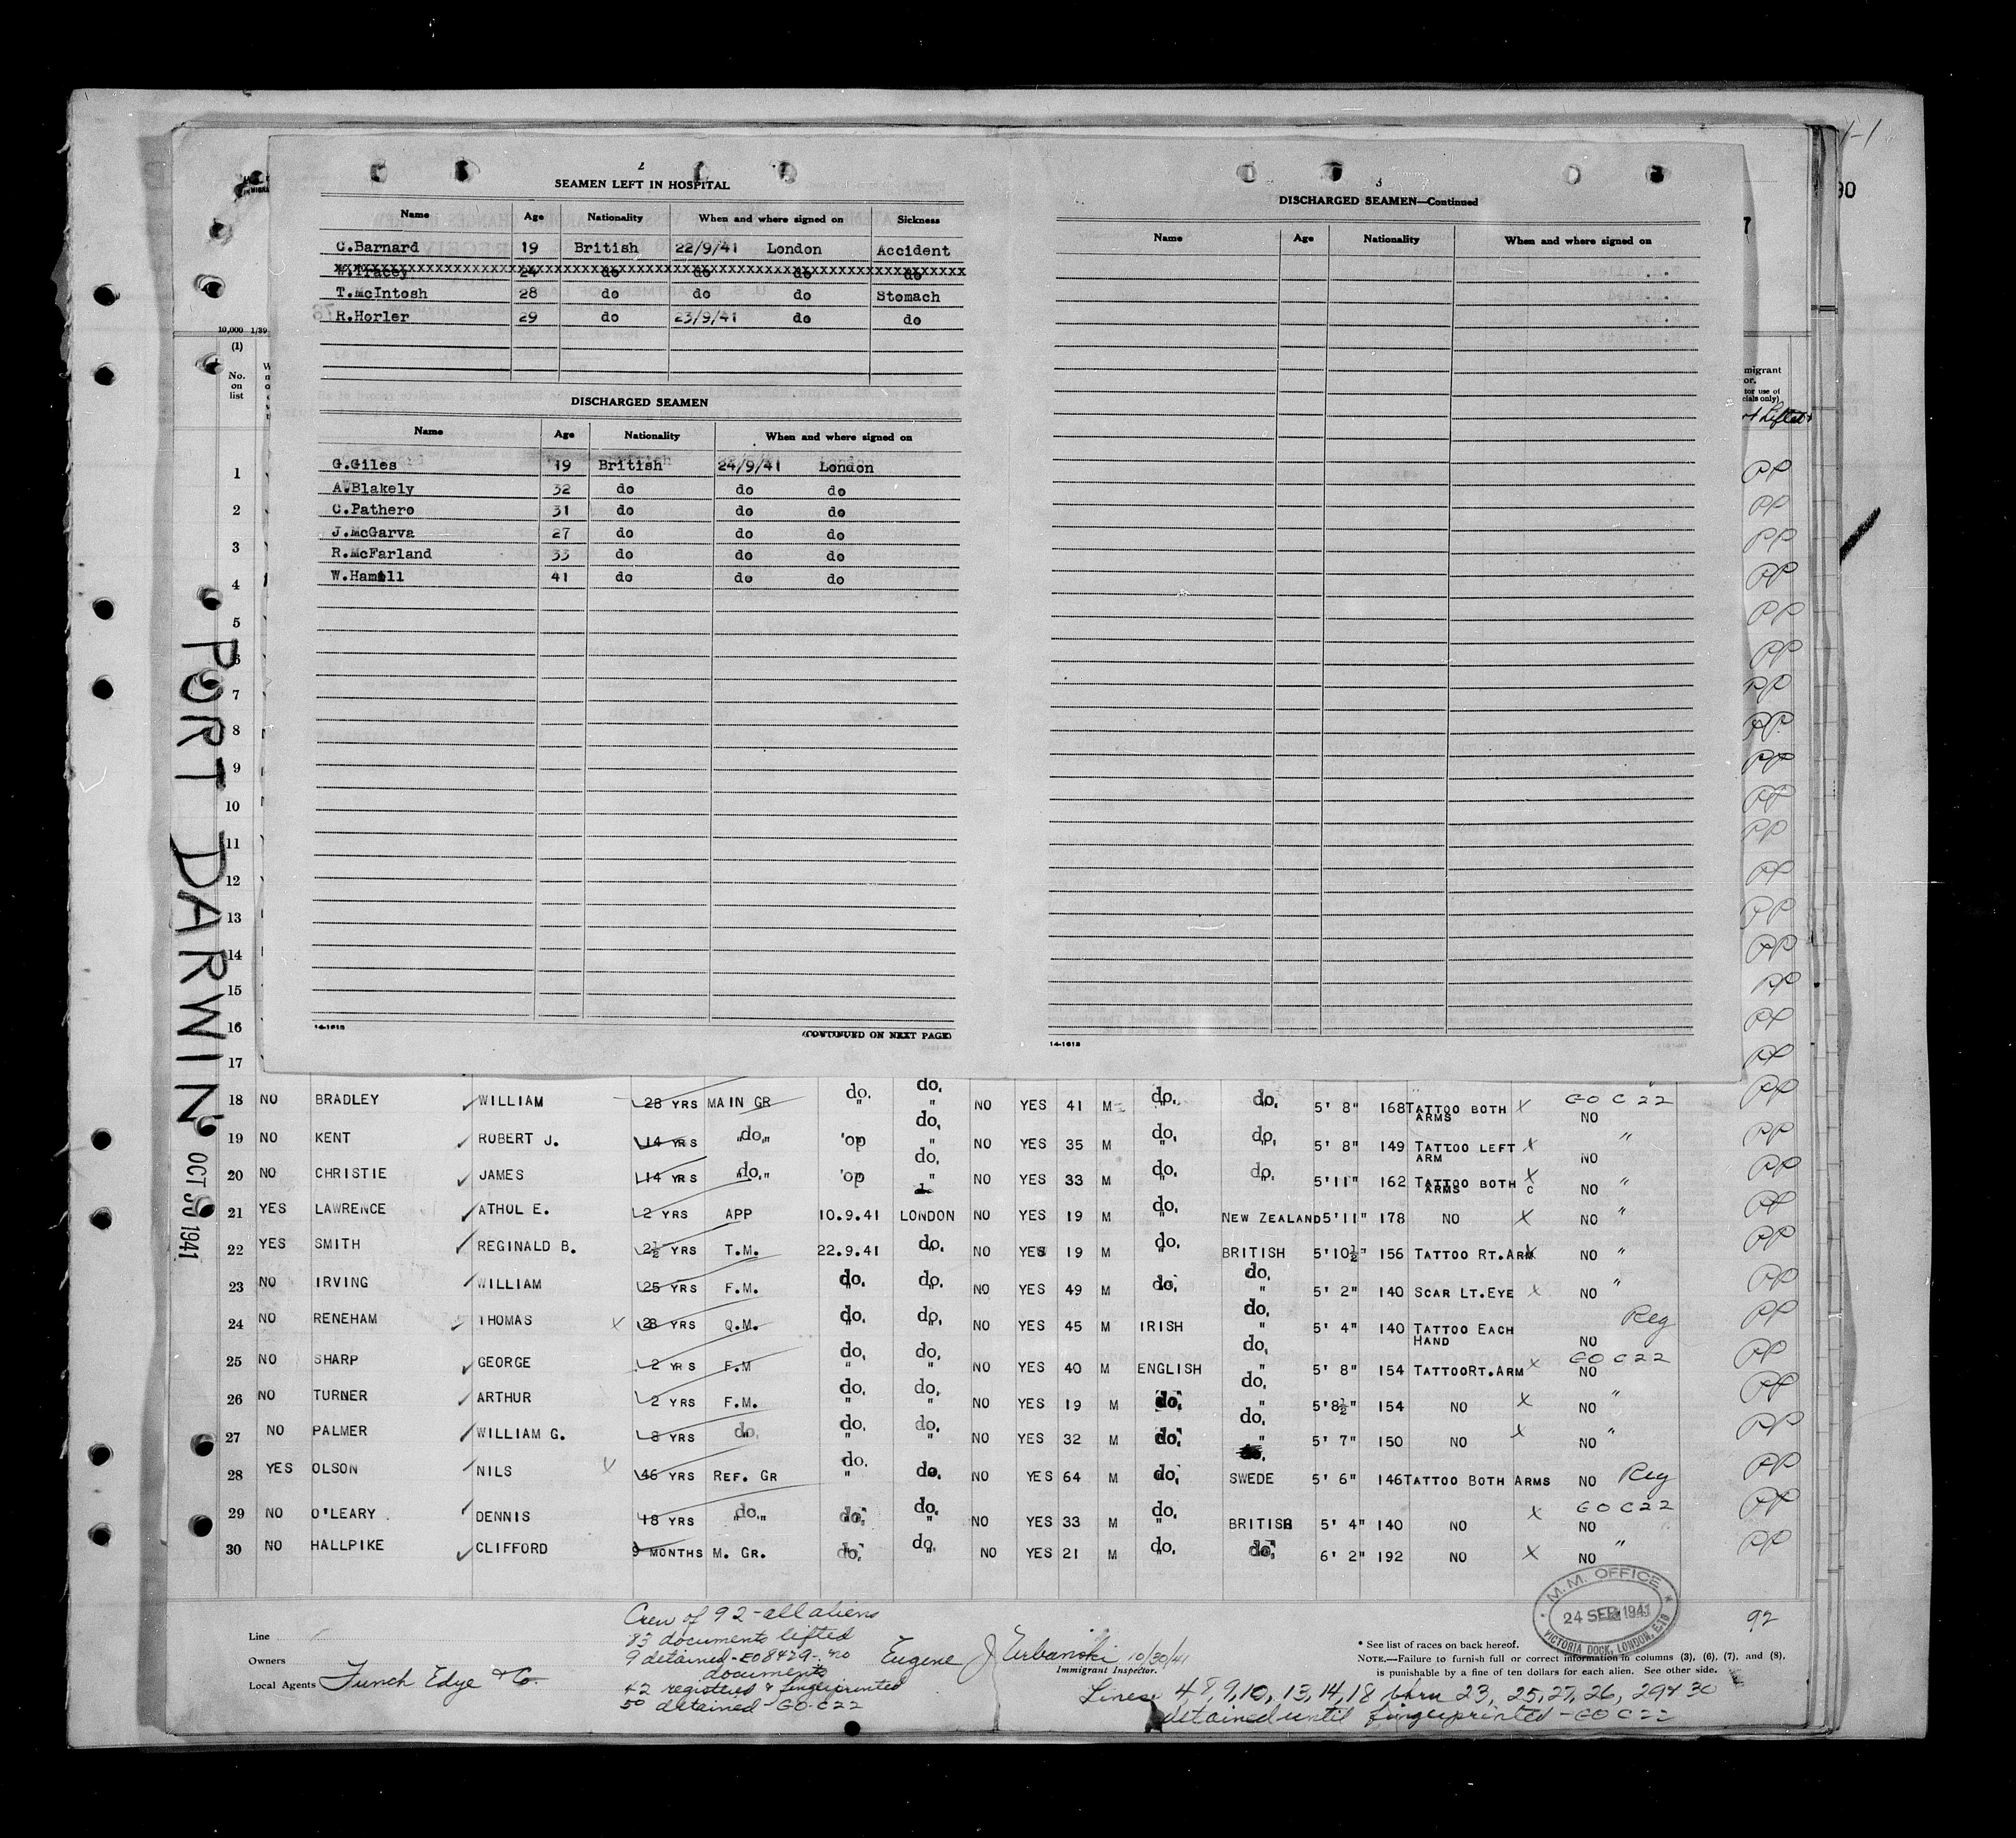 2
SEAMEN LEFT IN HOSPITAL
Name Age Nationality When and where signed on Sickness
C.Barnard 19 British 22/9/41 London Accident
W.Tracey 24 do do do do
T.McIntosh 28 do do do Stomach
R.Horler 29 do 23/9/41 do do
DISCHARGED SEAMEN
Name Age Nationality When and where signed on
G.Giles 19 British 24/9/41 London
A.Blakely 32 do do do
C.Pathero 31 do do do
J.McGarva 27 do do do
R.McFarland 33 do do do
W.Hamill 41 do do do
14-1618
(CONTINUED ON NEXT PAGE)
3
DISCHARGED SEAMEN—Continued
Name Age Nationality When and where signed on
14-1618
1-1
90
7
10,000 1/39
(1)
No. on list
migrant
or.
tor use of
cials only)
Lifted
1 PP
2 PP
3 PP
4 PP
5 PP
6 PP
7 PP
8 PP
9 PP
10 PP
11 PP
12 PP
13 PP
14 PP
15 PP
16 PP
17 PP
PORT DARWIN
OCT 30 1941
18 NO BRADLEY WILLIAM 28 YRS MAIN GR do. " do. " NO YES 41 M do. " do. " 5' 8" 168 TATTOO BOTH ARMS X NO GO C 22 PP
19 NO KENT ROBERT J. 14 YRS "do." do. do. " NO YES 35 M do. " do. " 5' 8" 149 TATTOO LEFT ARM X NO " PP
20 NO CHRISTIE JAMES 14 YRS "do." do. do. " NO YES 33 M do. " do. " 5'11" 162 TATTOO BOTH ARMS X C NO " PP
21 YES LAWRENCE ATHOL E. 2 YRS APP 10.9.41 LONDON NO YES 19 M do. " NEW ZEALAND 5'11" 178 NO X NO " PP
22 YES SMITH REGINALD B. 2½ YRS T.M. 22.9.41 do. " NO YES 19 M do. " BRITISH 5'10½" 156 TATTOO RT.ARM X NO " PP
23 NO IRVING WILLIAM 25 YRS F.M. do. " do. " NO YES 49 M do. do. " 5' 2" 140 SCAR LT.EYE X NO " PP
24 NO RENEHAM THOMAS X 28 YRS Q.M. do. " do. " NO YES 45 M IRISH do. " 5' 4" 140 TATTOO EACH HAND NO Reg PP
25 NO SHARP GEORGE 2 YRS F.M do. " do. " NO YES 40 M ENGLISH do. " 5' 8" 154 TATTOO RT.ARM X NO GO C 22 PP
26 NO TURNER ARTHUR 2 YRS F.M. do. " do. " NO YES 19 M do. do. " 5'8½" 154 NO X NO " PP
27 NO PALMER WILLIAM G. 8 YRS do. do. " do. " NO YES 32 M do. do. " 5' 7" 150 NO X NO " PP
28 YES OLSON NILS X 46 YRS REF. GR do. " do. NO YES 64 M do. SWEDE 5' 6" 146 TATTOO BOTH ARMS NO Reg PP
29 NO O'LEARY DENNIS 18 YRS "do." do. do. " NO YES 33 M do. " BRITISH 5' 4" 140 NO X NO GO C 22 PP
30 NO HALLPIKE CLIFFORD 9 MONTHS M. GR. do. do. NO YES 21 M do. " do. 6' 2" 192 NO X NO " PP
Line
Owners
Local Agents Funch Edye & Co.
Crew of 92 - all aliens
83 documents lifted
9 detained - EO 8429 - no
documents
42 registered & fingerprinted
50 detained - GO-C22
Eugene J Urbanski 10/30/41
Immigrant Inspector.
M.M. OFFICE
24 SEP 1941
VICTORIA DOCK, LONDON, E.16
92
* See list of races on back hereof.
NOTE.—Failure to furnish full or correct information in columns (3), (6), (7), and (8),
is punishable by a fine of ten dollars for each alien. See other side.
Lines 4, 8, 9, 10, 13, 14, 18 thru 23, 25, 27, 26, 29 & 30
detained until fingerprinted - GO C 22